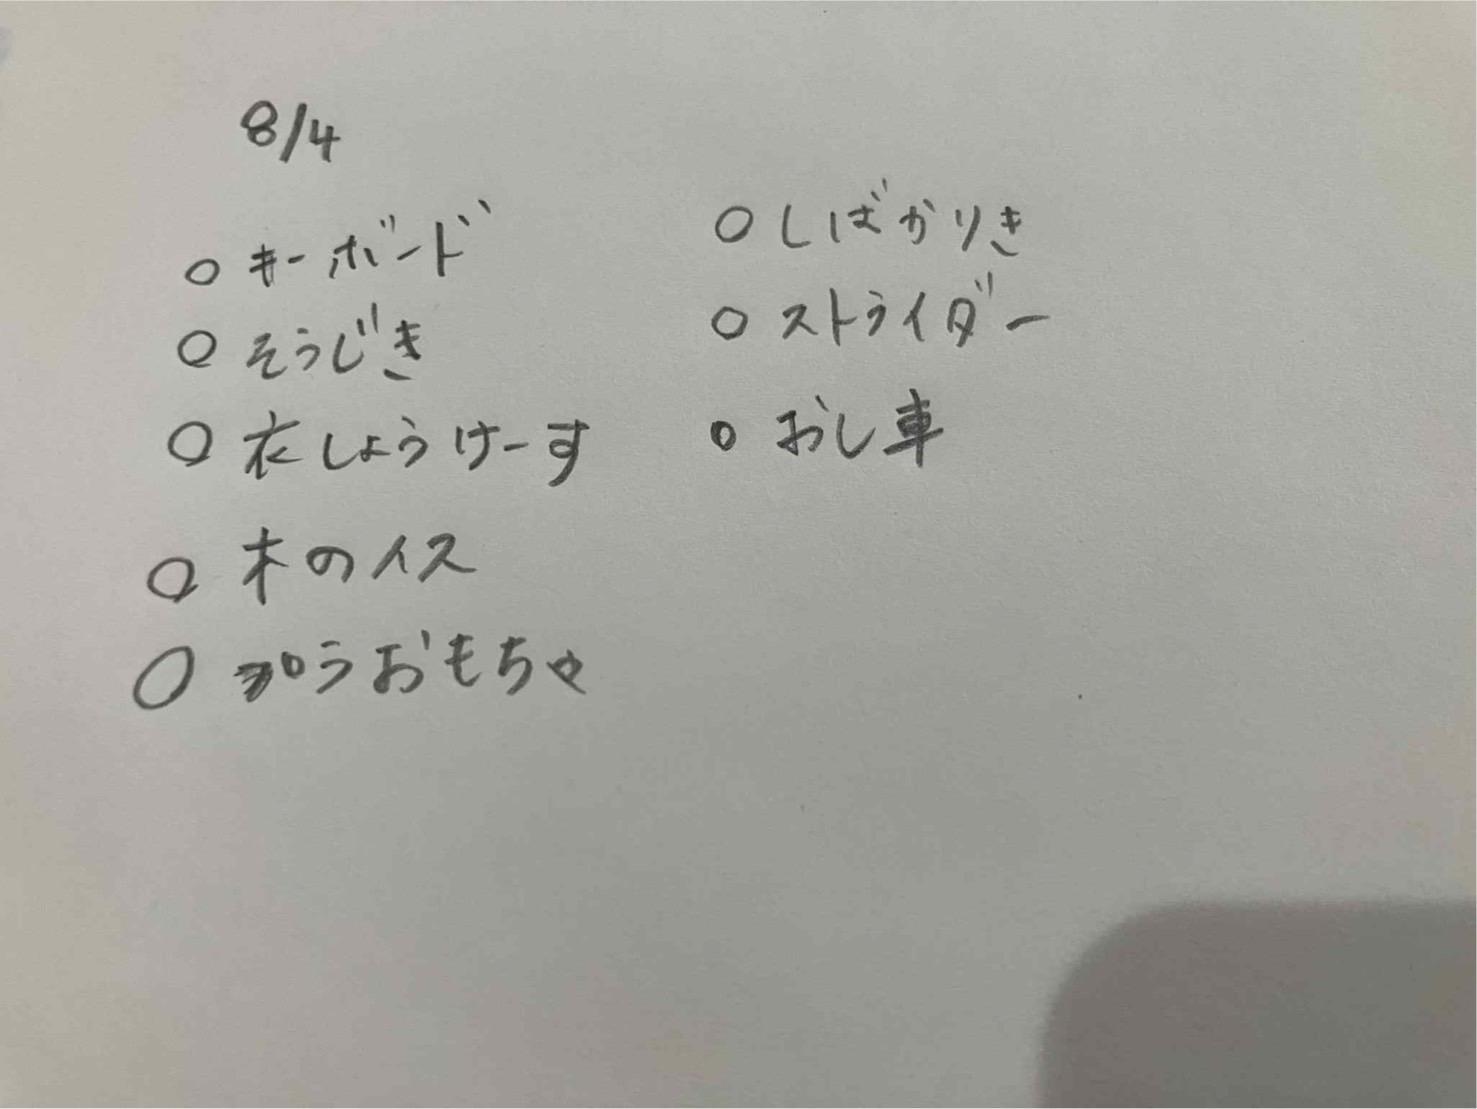 8/4
○ キーボード
○ そうじき
○ 衣しょうけーす
○ 木のイス
○ プラおもちゃ
○ しばかりき
○ ストライダー
○ おし車